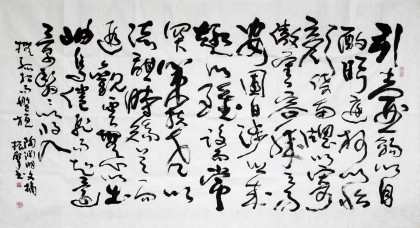 引壶觞以自
酌眄庭柯以怡
颜倚南窗以寄
傲审容膝之易
安园日涉以成
趣门虽设而常
关策扶老以
流憩时矫首而
遐观云无心以出
岫鸟倦飞而知还
景翳翳以将入
抚孤松而盘桓
陶渊明文摘
书